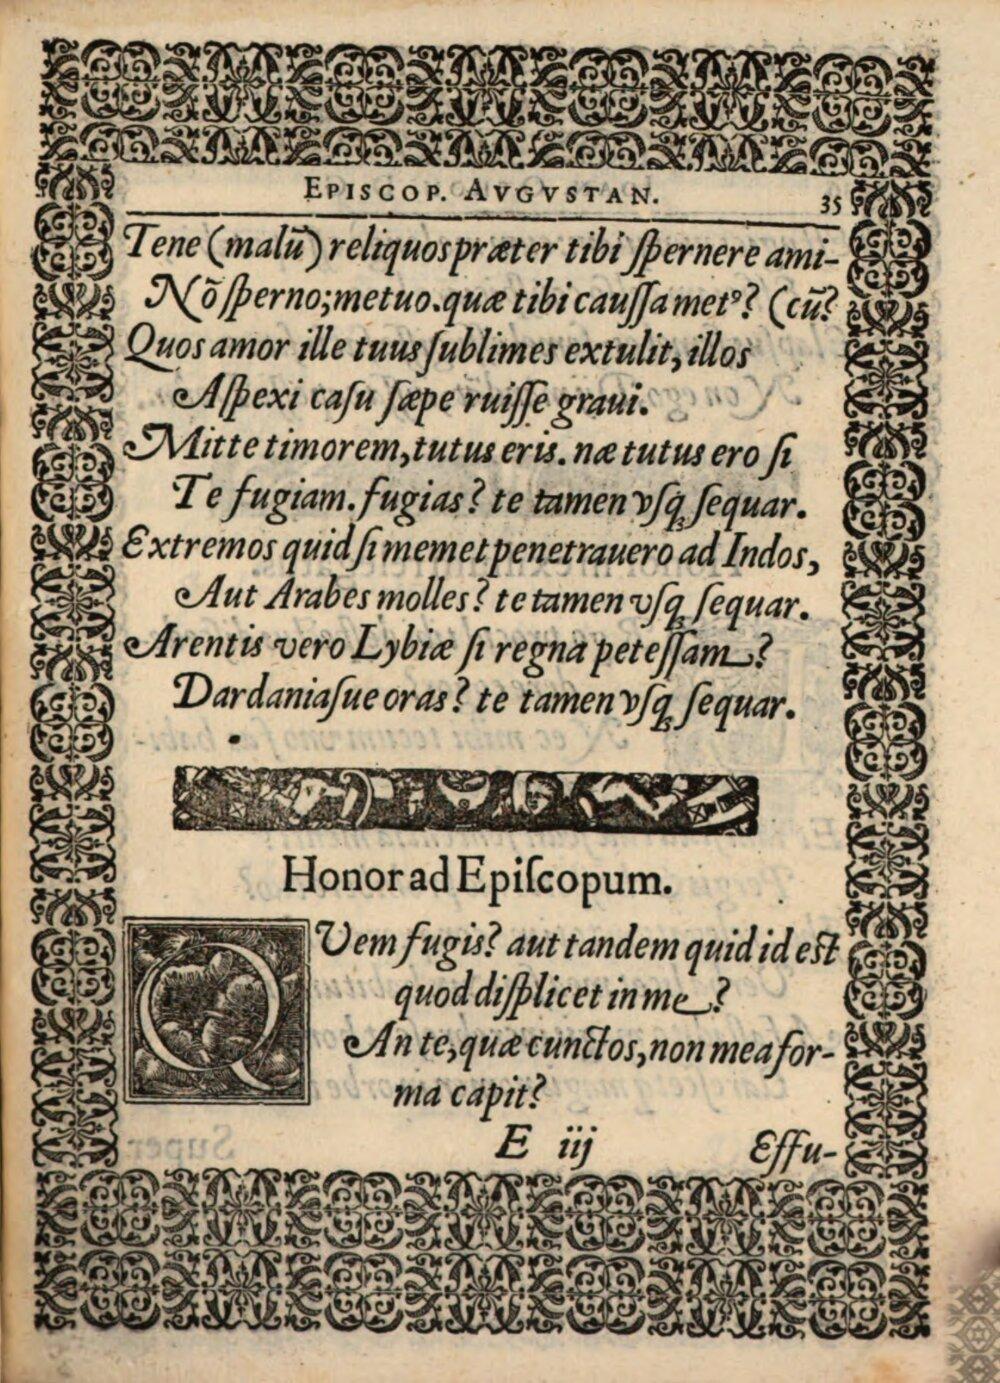 EPISCOP. AVGVSTAN. 35
Tene (malū) reliquos præter tibi ſpernere ami-
Nō ſperno; metuo. quæ tibi cauſſa metꝰ? (cū?
Quos amor ille tuus ſublimes extulit, illos
Aſpexi caſu ſæpe ruiſſe graui.
Mitte timorem, tutus eris. næ tutus ero ſi
Te fugiam. fugias? te tamen vſq; ſequar.
Extremos quid ſi memet penetrauero ad Indos,
Aut Arabes molles? te tamen vſq; ſequar.
Arentis vero Lybiæ ſi regna peteſſam?
Dardaniaſue oras? te tamen vſq; ſequar.
Honor ad Epiſcopum.
QVem fugis? aut tandem quid id est
quod diſplicet in me?
An te, quæ cunctos, non mea for-
ma capit?
E iij Effu-